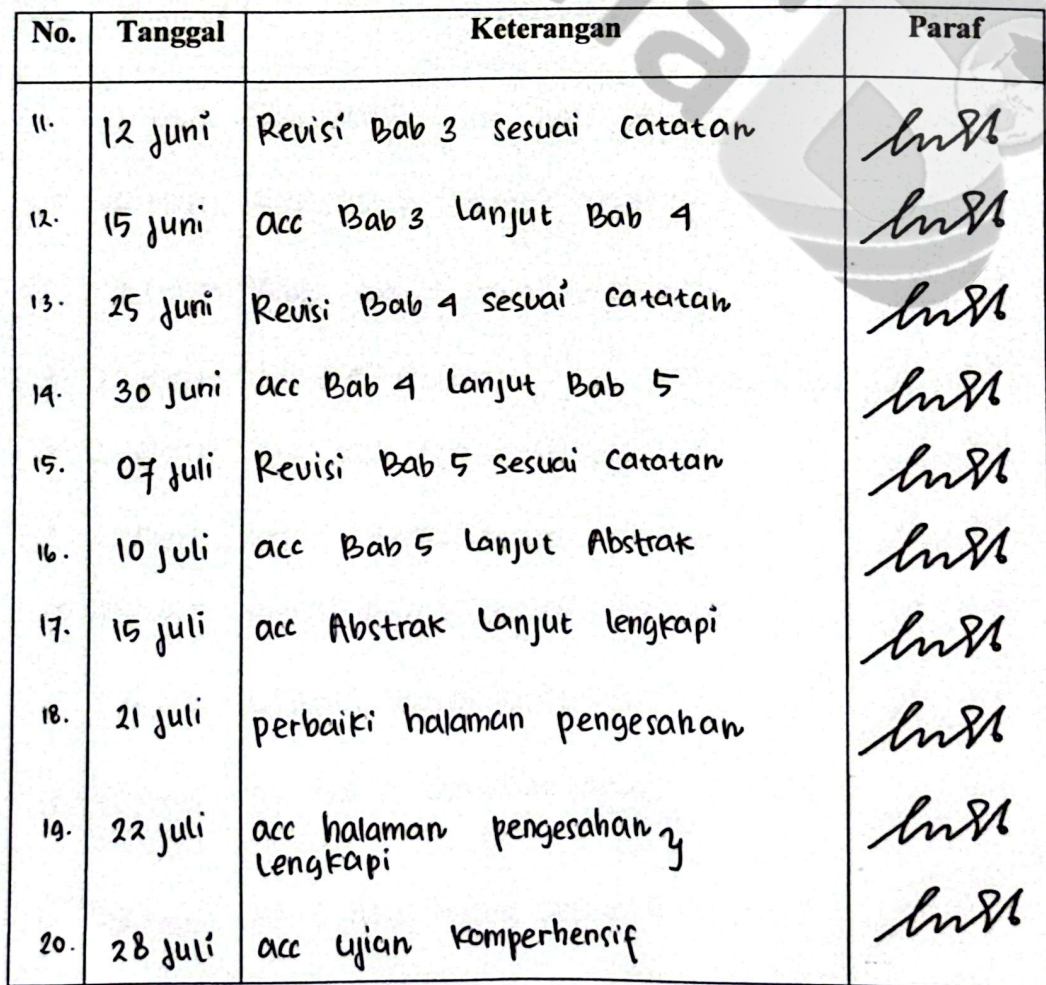 No. Tanggal Keterangan Paraf
11. 12 Juni Revisi Bab 3 sesuai catatan
12. 15 Juni acc Bab 3 Lanjut Bab 4
13. 25 Juni Revisi Bab 4 sesuai catatan
14. 30 Juni acc Bab 4 Lanjut Bab 5
15. 07 Juli Revisi Bab 5 sesuai catatan
16. 10 Juli acc Bab 5 Lanjut Abstrak
17. 15 Juli acc Abstrak Lanjut lengkapi
18. 21 Juli perbaiki halaman pengesahan
19. 22 Juli acc halaman pengesahan
Lengkapi
20. 28 Juli acc ujian komperhensif